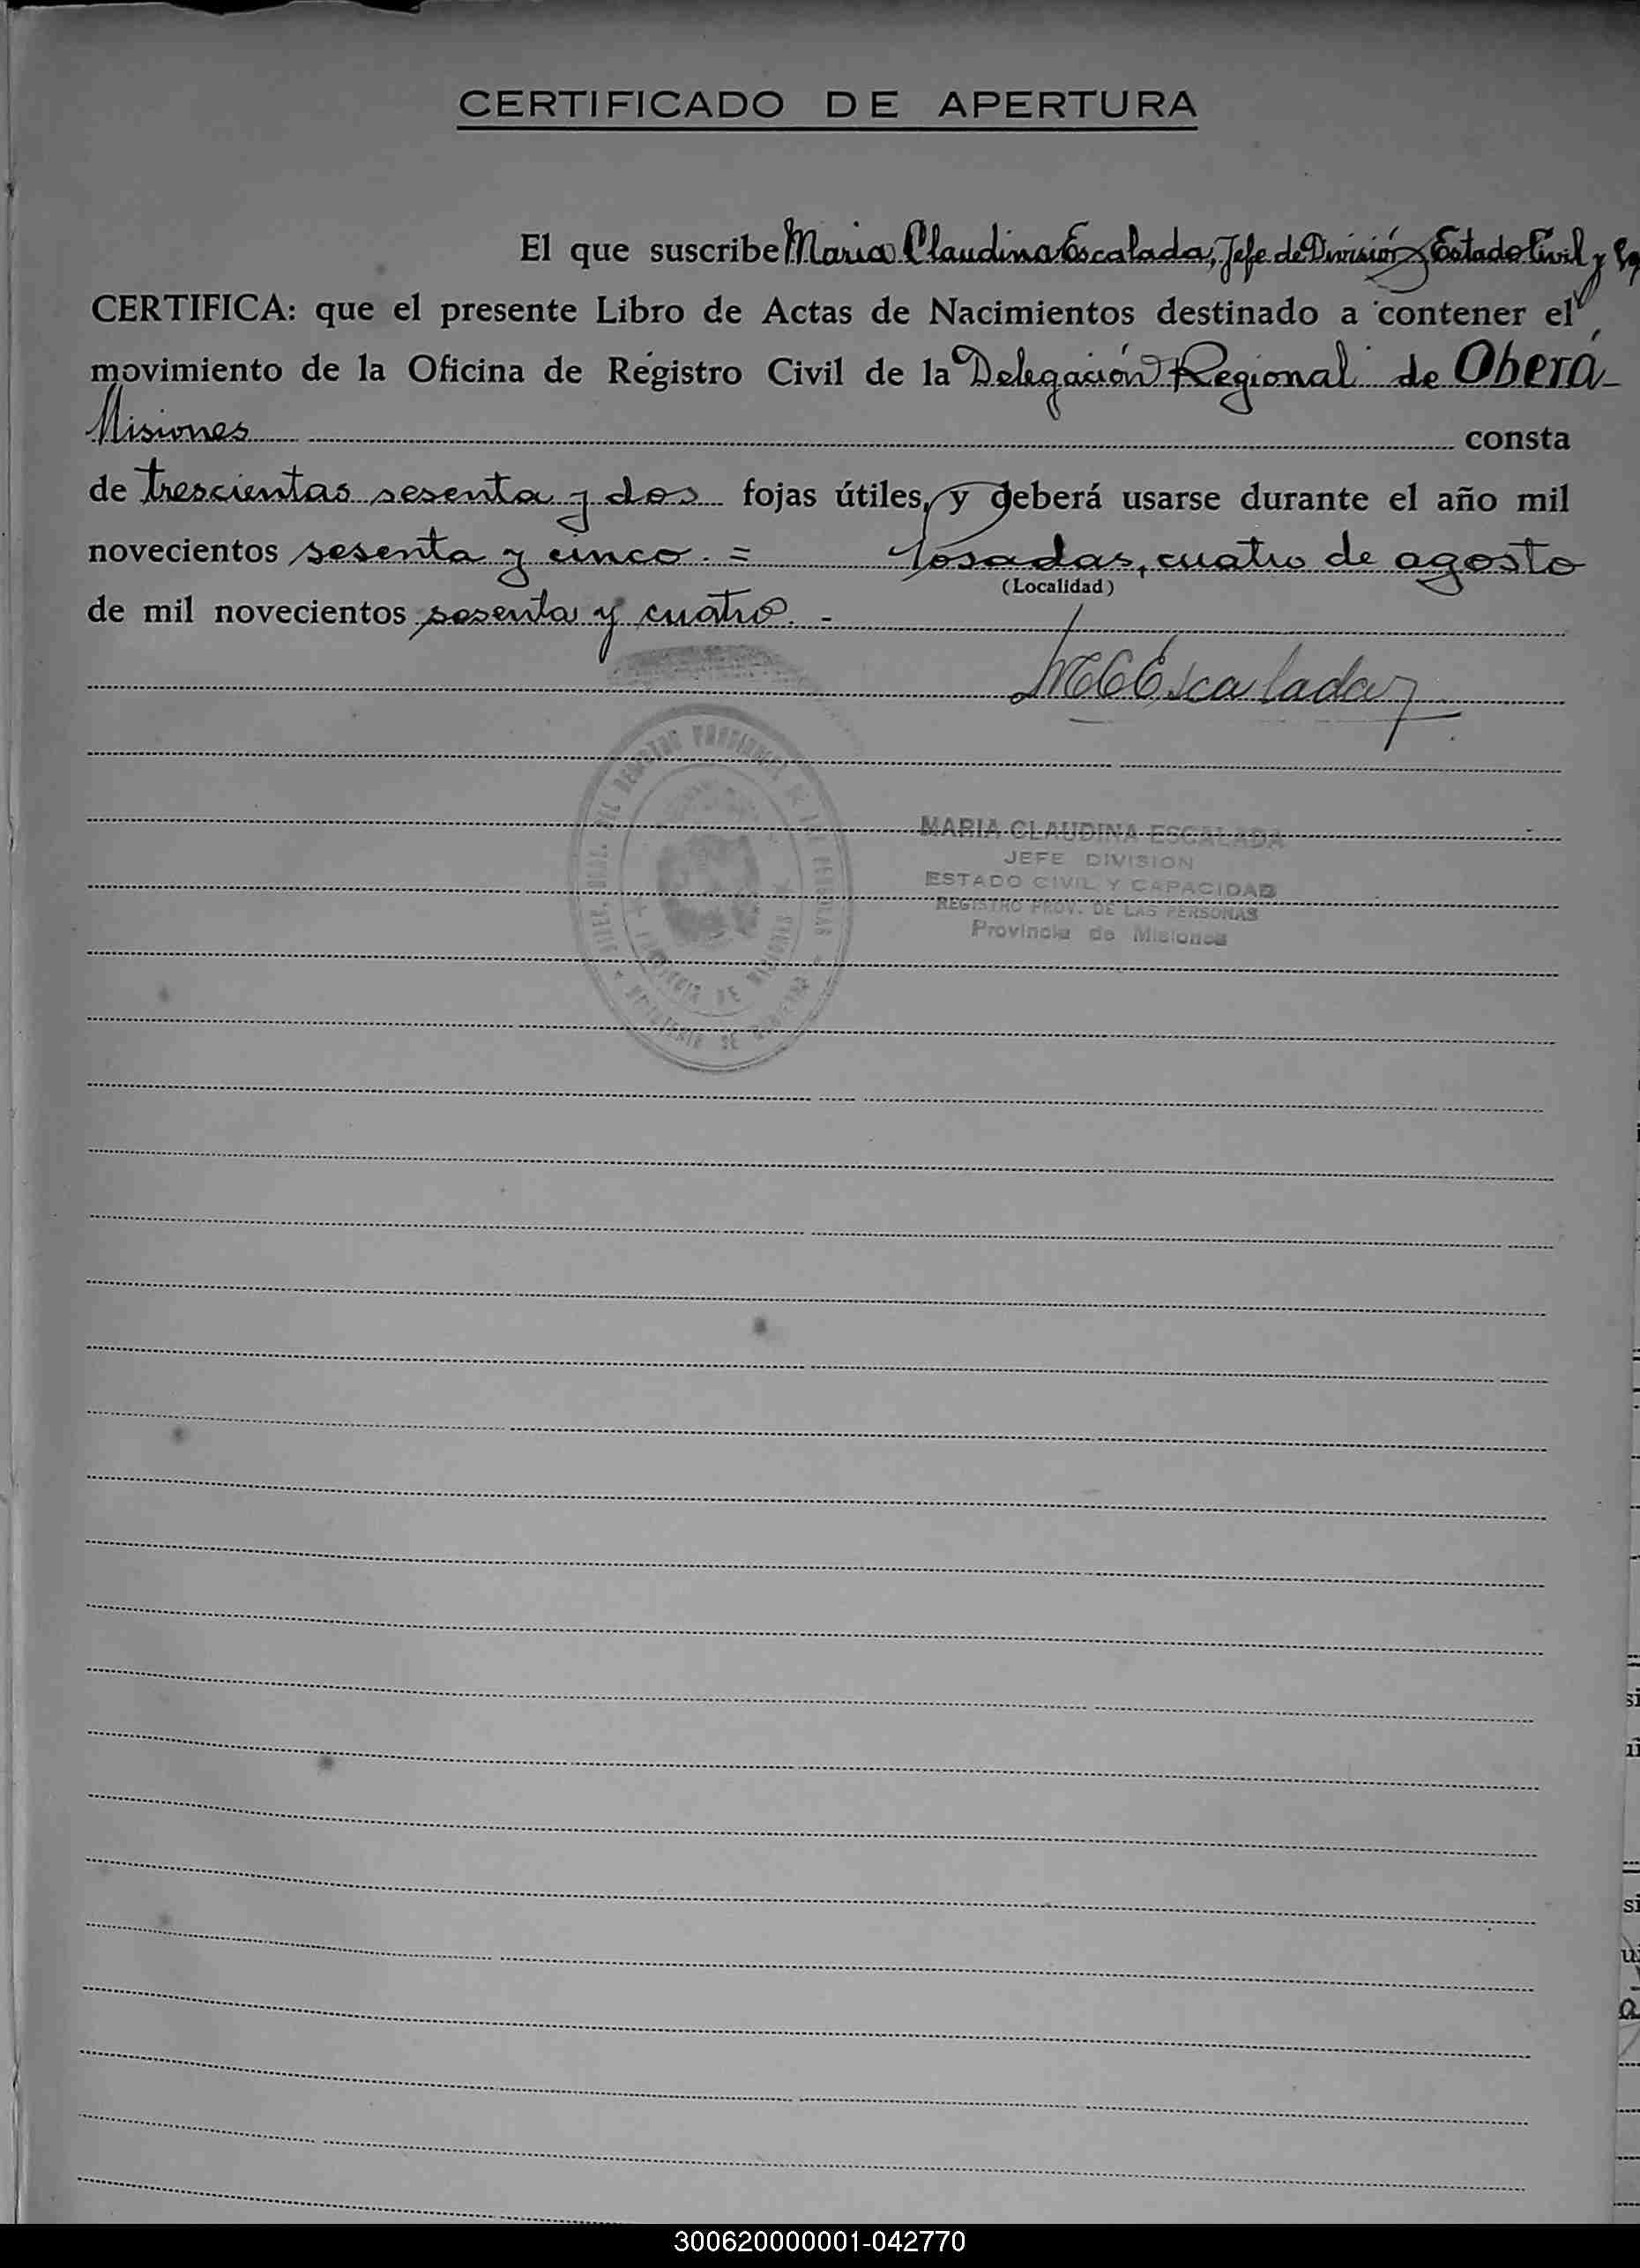 CERTIFICADO DE APERTURA
El que suscribe Maria Claudina Escalada, Jefe de División Estado Civil y
CERTIFICA: que el presente Libro de Actas de Nacimientos destinado a contener el
movimiento de la Oficina de Registro Civil de la Delegación Regional de Oberá
Misiones consta
de trescientas sesenta y dos fojas útiles, y deberá usarse durante el año mil
novecientos sesenta y cinco. = Posadas, cuatro de agosto
(Localidad)
de mil novecientos sesenta y cuatro. -
MCEscalada
MARIA CLAUDINA ESCALADA
JEFE DIVISION
ESTADO CIVIL Y CAPACIDAD
REGISTRO PROV. DE LAS PERSONAS
Provincia de Misiones
DEL REGISTRO PROVINCIAL DE LAS PERSONAS
MINISTERIO DE GOBIERNO
PROVINCIA DE MISIONES
300620000001-042770